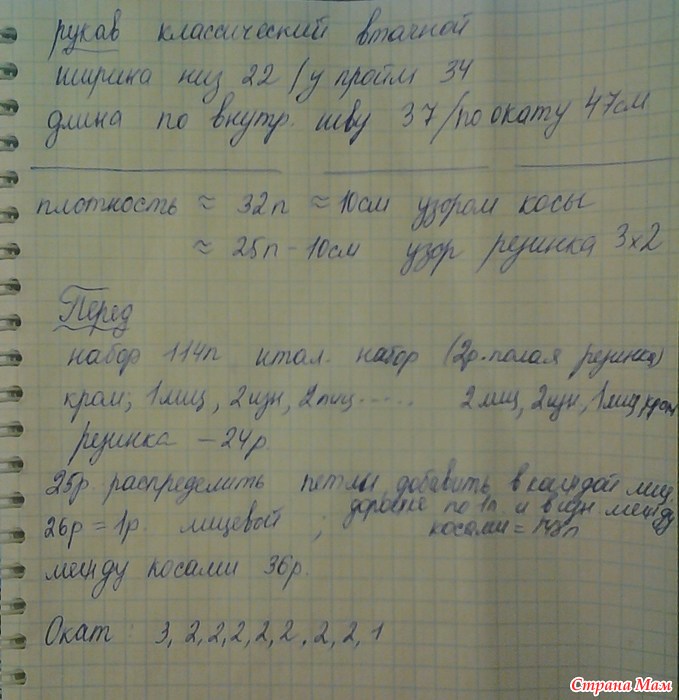 рукав классический втачной
ширина низ 22 / у пройм 34
длина по внутр. шву 37 / по окату 47см
плотность ≈ 32п ≈ 10см узором косы
≈ 25п - 10см узор резинка 3х2
Перед
набор 114п итал. набор (2р. полая резинка)
кром, 1лиц, 2изн, 2лиц ..... 2лиц, 2изн, 1лиц, кром
резинка - 24р.
25р. распределить петли, добавить в каждой лиц.
дорожке по 1п. и в изн между
26р = 1р. лицевой ; косами =
между косами 36р.
Окат: 3, 2, 2, 2, 2, 2, 2, 2, 1
Страна Мам